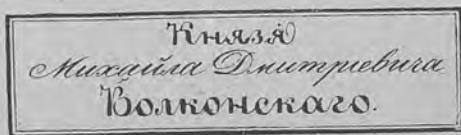 Князя
Михайла Дмитриевича
Волконскаго.